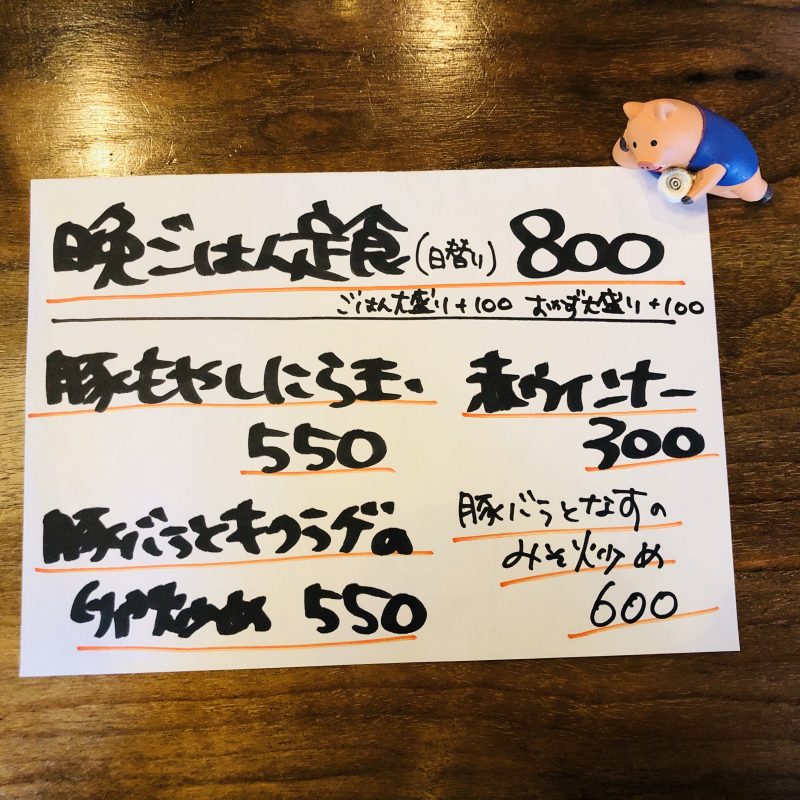 晩ごはん定食(日替り) 800
ごはん大盛り+100 おかず大盛り+100
豚もやしにら玉、
550
赤ウインナー
300
豚バラとキクラゲの
卵炒め 550
豚バラとなすの
みそ炒め
600